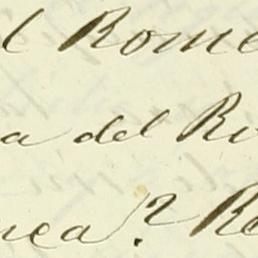 l Rome
a del Ro
nea? Ro